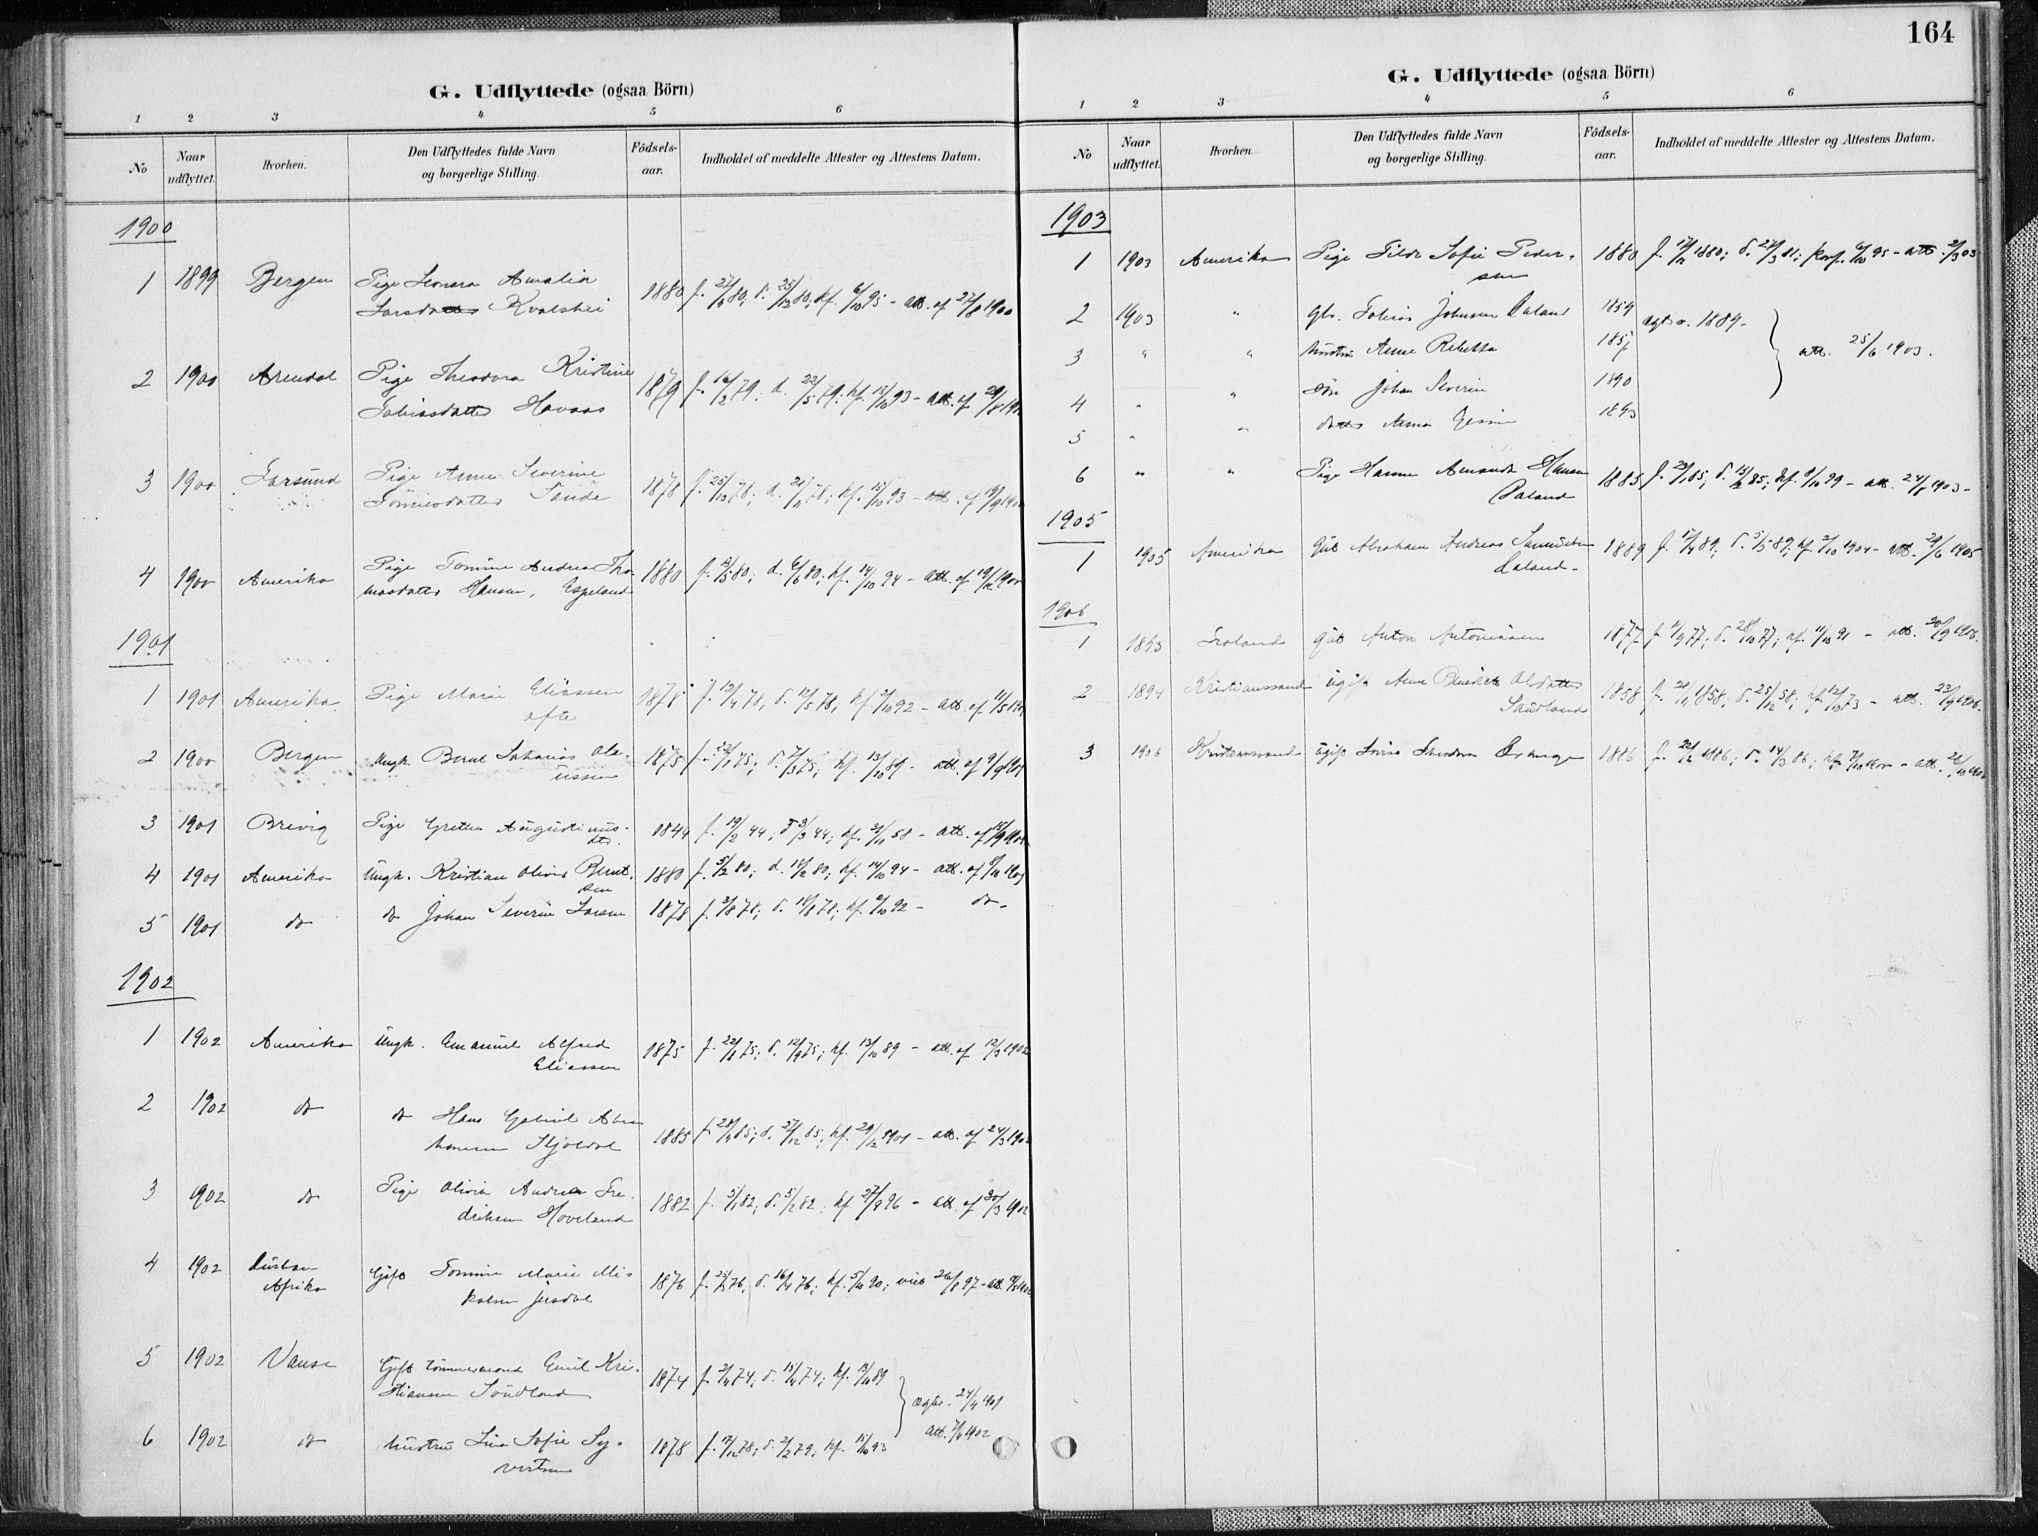 164
G. Udflyttede (ogsaa Börn)
1 2 3 4 5 6
No Naar udflyttet. Hvorhen. Den Udflyttedes fulde Navn og borgerlige Stilling. Födsels-aar. Indholdet af meddelte Attester og Attestens Datum.
1900
1 1899 Bergen Pige Leonora Amalia 1880 f. 27/10 80; d. 25/12 80; kf. 6/10 95 - att. af 27/8 1900
Larsdatter Kvalshei
2 1900 Arendal Pige Theodora Kristine 1879 f. 16/2 79; d. 22/5 79; kf. 15/10 93 - att. af 29/8 1900
Tobiasdatter Havaas
3 1900 Farsund Pige Anne Severine 1878 f. 25/10 78; d. 21/11 78; kf. 15/10 93 - att. af 19/9 1900
Tønnesdatter Sande
4 1900 Amerika Pige Tomine Andrea Tho- 1880 f. 13/5 80; d. 6/6 80; kf. 14/10 94 - att. af 19/12 1900
masdatter Hansen, Espeland
1901
1 1901 Amerika Pige Marie Eliassen 1878 f. 13/4 78; d. 12/5 78; kf. 2/10 92 - att. af 11/5 1901
ofte
2 1900 Bergen Ungk. Bernt Zakarias Ole- 1875 f. 22/1 75; d. 7/3 75; kf. 13/10 89 - att. af 9/9 1901
aussen
3 1901 Brevig Pige Grethe Augustinus- 1844 f. 19/2 44; d. 3/3 44; kf. 31/10 58 - att. af 15/9 1901
dtr.
4 1901 Amerika Ungk. Kristian Olius Bernt- 1880 f. 5/2 80; d. 18/2 80; kf. 14/10 94 - att. af 8/11 1901
sen
5 1901 do do Johan Severin Larsen 1878 f. 3/8 78; d. 18/8 78; kf. 9/10 92 - do.
1902
1 1902 Amerika Ungk. Emanuel Alfred 1875 f. 22/8 75; d. 12/9 75; kf. 13/10 89 - att. af 12/3 1902
Eliassen
2 1902 do do Hans Gabriel Abra- 1885 f. 28/11 85; d. 27/12 85; kf. 29/12 1901 - att. af 24/3 1902
hamsen Skjoldal
3 1902 do Pige Olivia Andrea Fre- 1882 f. 5/1 82; d. 5/2 82; kf. 27/9 96 - att. af 20/3 1902
driksen Hoveland
4 1902 Durban Gift Tomine Marie Mi- 1876 f. 25/2 76; d. 16/4 76; kf. 5/10 90; viet 26/8 97 -
Afrika kalsen
5 1902 Vanse Gift Tømmermand Emil Kri- 1874 f. 2/4 74; d. 15/4 74; kf. 13/10 89
stiansen Sandland
Ægtev. 24/4 1901
6 1902 do hustru Lina Sofie Sy- 1878 f. 12/12 78; d. 2/2 79; kf. 15/10 93 att. 7/9 1902
vertsen
G. Udflyttede (ogsaa Börn)
1 2 3 4 5 6
No Naar udflyttet. Hvorhen. Den Udflyttedes fulde Navn og borgerlige Stilling. Födsels-aar. Indholdet af meddelte Attester og Attestens Datum.
1903
1 1903 Amerika Pige Tilda Sofie Peder- 1880 f. 17/12 1880; d. 27/3 81; konf. 6/10 95 - att. 2/3 03
sen
2 1903 " gbr. Tobias Johnsen Daland 1859 Ægtev. 1889 -
3 " " hustru Anne Rebekka 1857 att. 25/6 1903.
4 " " søn Johan Severin 1890
5 " " datter Anna 1893
6 " " Pige Hanne Amanda Hansen 1885 f. 29/1 85; d. 15/2 85; kf. 8/10 99 - att. 24/8 1903 -
Daland
1905
1 1905 Amerika Gut Abraham Andreas Samuelsen 1889 f. 5/4 89; d. 5/5 89; kf. 2/10 1904 - att. 29/6 1905
Daland -
1906
1 1893 Froland Gut Anton Antonissen 1877 f. 11/9 77; d. 28/10 77; kf. 11/10 91 - att. 20/9 1906.
2 1894 Kristianssand ugift Anne Benedicte Olsdatter 1858 f. 20/11 1858; d. 25/12 58; kf. 12/10 73 - att. 23/9 1906.
Sandland
3 1906 Kristianssand ugift Lovise 1886 f. 22/2 1886; d. 14/3 86; kf. 7/10 1900 - att. 22/10 1906